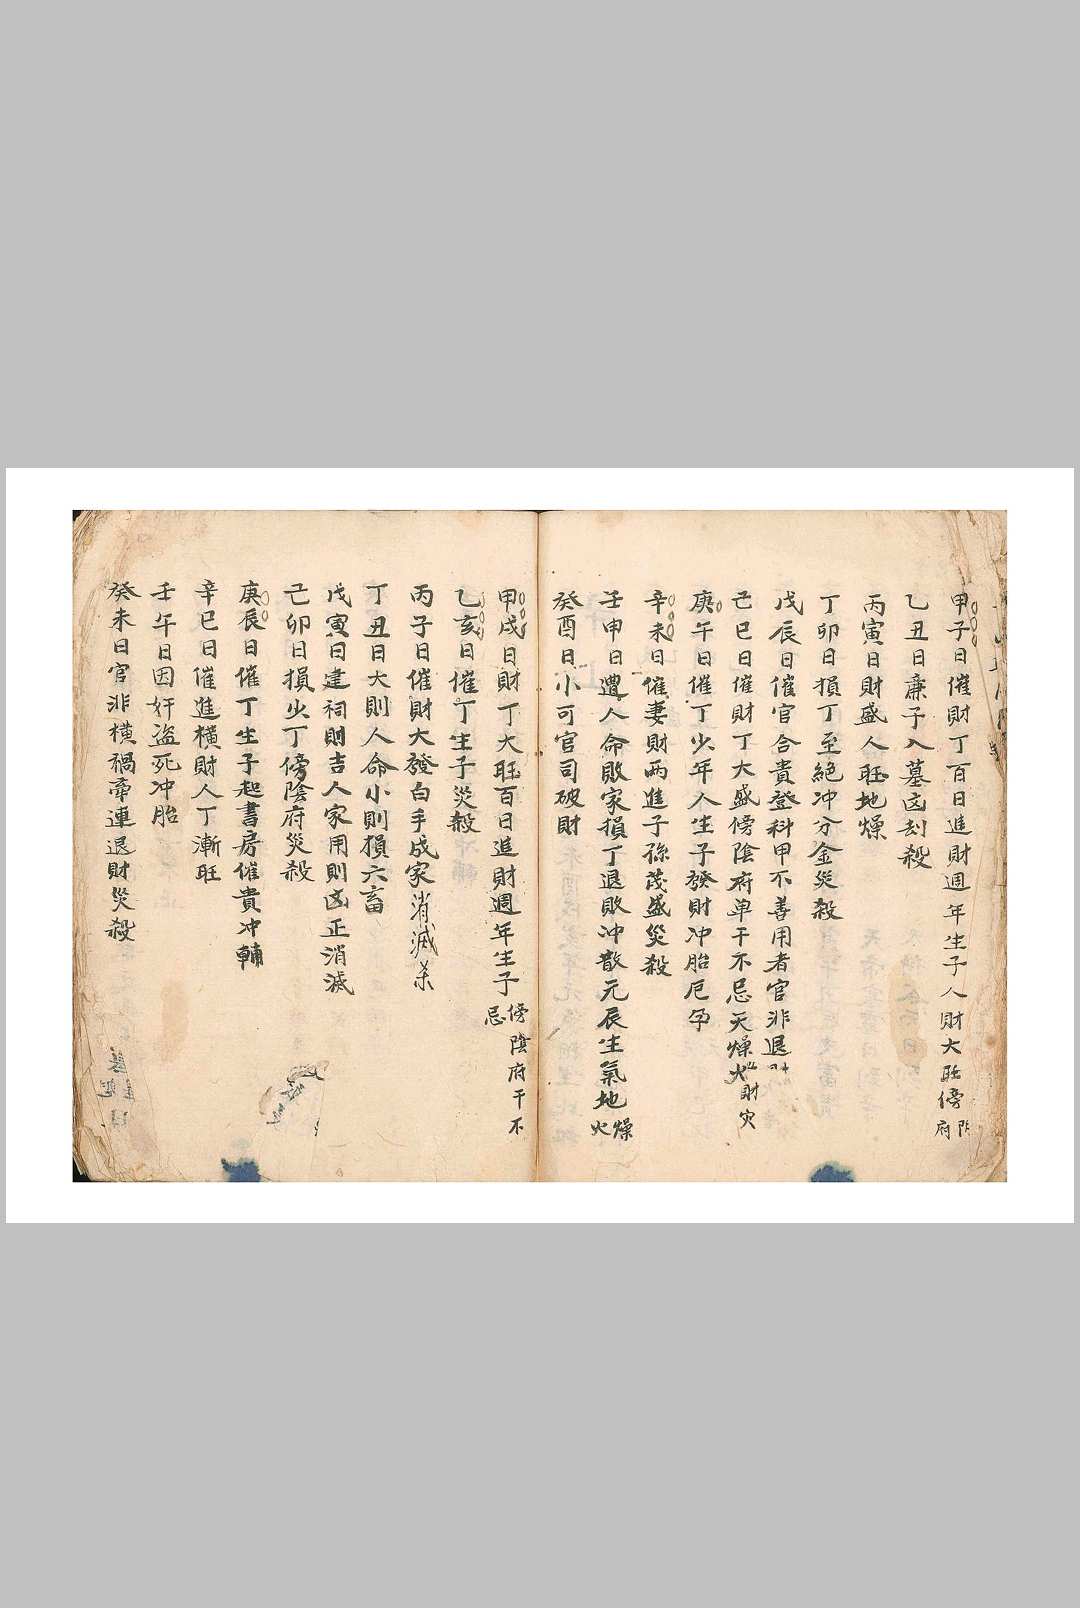 甲子日催財丁百日進財週年生子人財大旺傍陰府
乙丑日廉子入墓凶刦殺
丙寅日財盛人旺地燥
丁卯日損丁至絕冲分金災殺
戊辰日催官合貴登科甲不善用者官非退財
己巳日催財丁大盛傍陰府单干不忌天燥火
庚午日催丁少年人生子發財冲胎厄孕
辛未日催妻財両進子孫茂盛災殺
壬申日遭人命敗家損丁退敗冲散元辰生氣地燥火
癸酉日小可官司破財
甲戌日財丁大旺百日進財週年生子傍陰府干不忌
乙亥日催丁生子災殺
丙子日催財大發白手成家消滅杀
丁丑日大則人命小則損六畜
戊寅日建祠則吉人家用則凶正消滅
己卯日損少丁傍陰府災殺
庚辰日催丁生子起書房催貴冲輔
辛巳日催進橫財人丁漸旺
壬午日因奸盗死冲胎
癸未日官非橫禍牵連退財災殺